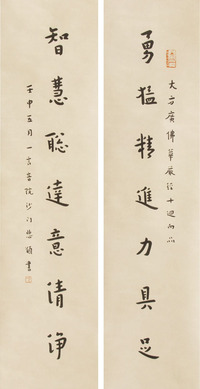 大方廣佛華嚴經十迴向品
勇猛精進力具足
智慧聡達意清淨
壬申五月一音院沙門